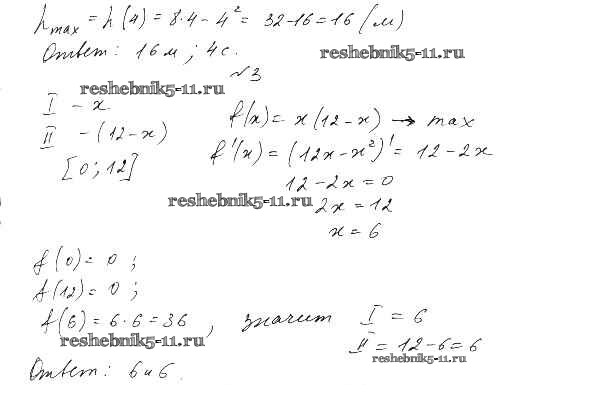 h max = h(4) = 8·4 - 4² = 32-16 = 16 (м)
Ответ: 16 м; 4 с.
reshebnik5-11.ru
№3
reshebnik5-11.ru
I - x
II - (12 - x)
[0; 12]
f(x) = x(12 - x) → max
f'(x) = (12x - x²)' = 12 - 2x
12 - 2x = 0
reshebnik5-11.ru
2x = 12
x = 6
f(0) = 0 ;
f(12) = 0 ;
f(6) = 6·6 = 36, значит I = 6
reshebnik5-11.ru
II = 12-6 = 6
reshebnik5-11.ru
Ответ: 6 и 6.